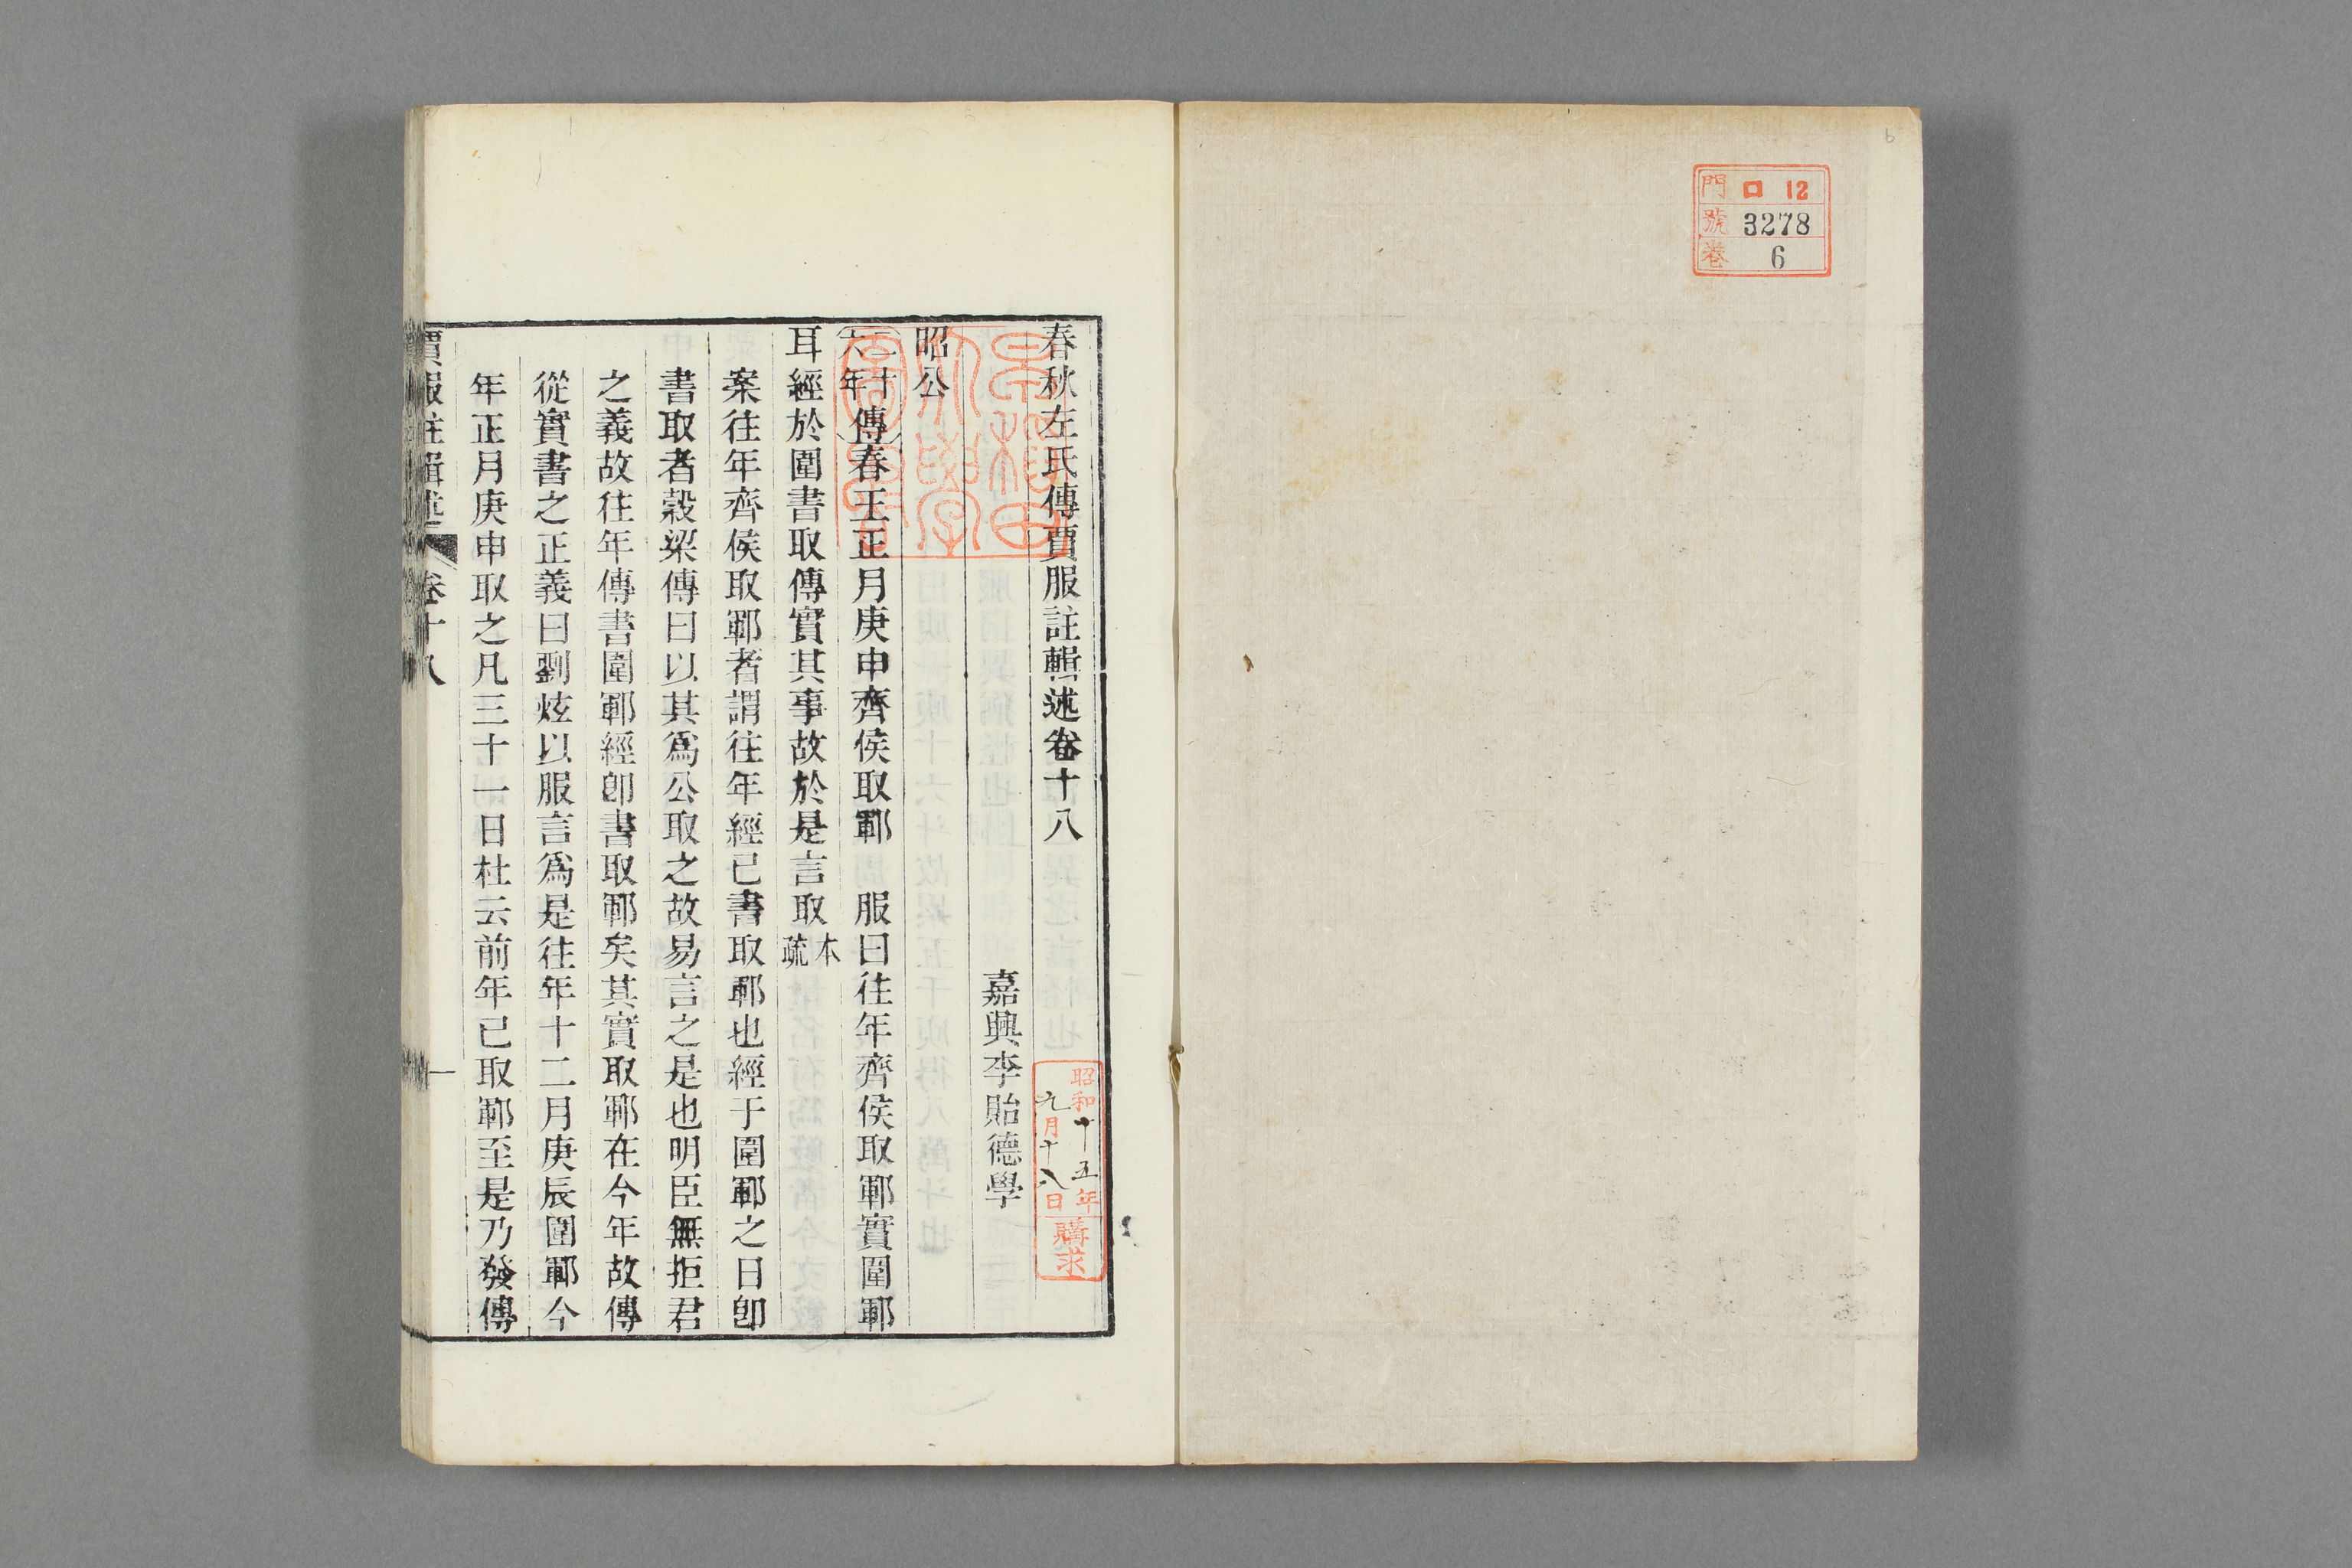 門 ロ 12
號 3278
卷 6
春秋左氏傳賈服註輯述卷十八
嘉興李貽德學
昭和十五年
九月十八日
購求
昭公
二十六年傳春王正月庚申齊侯取鄆 服曰往年齊侯取鄆實圍鄆
耳經於圍書取傳實其事故於是言取本疏
案往年齊侯取鄆者謂往年經已書取鄆也經于圍鄆之日卽
書取者榖梁傳曰以其爲公取之故易言之是也明臣無拒君
之義故往年傳書圍鄆經卽書取鄆矣其實取鄆在今年故傳
從實書之正義曰劉炫以服言爲是往年十二月庚辰圍鄆今
年正月庚申取之凡三十一日杜云前年已取鄆至是乃發傳
賈服註輯述 卷十八 一